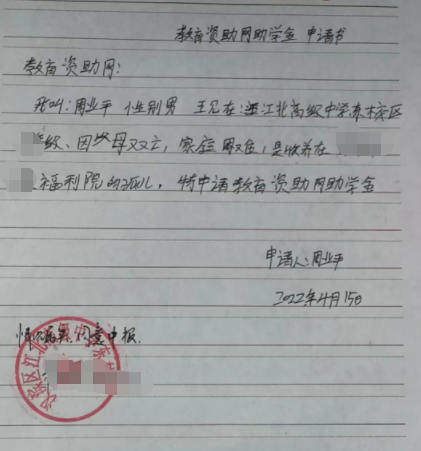 教育资助网助学金 申请书
教育资助网:
我叫:周业平 性别男 现在:江北高级中学东校区
级、因父母双亡,家庭困难,是收养在
福利院的孤儿,特申请教育资助网助学金
申请人:周业平
2022年4月15日
情况属实,同意申报.
汉滨区江北高级中学东